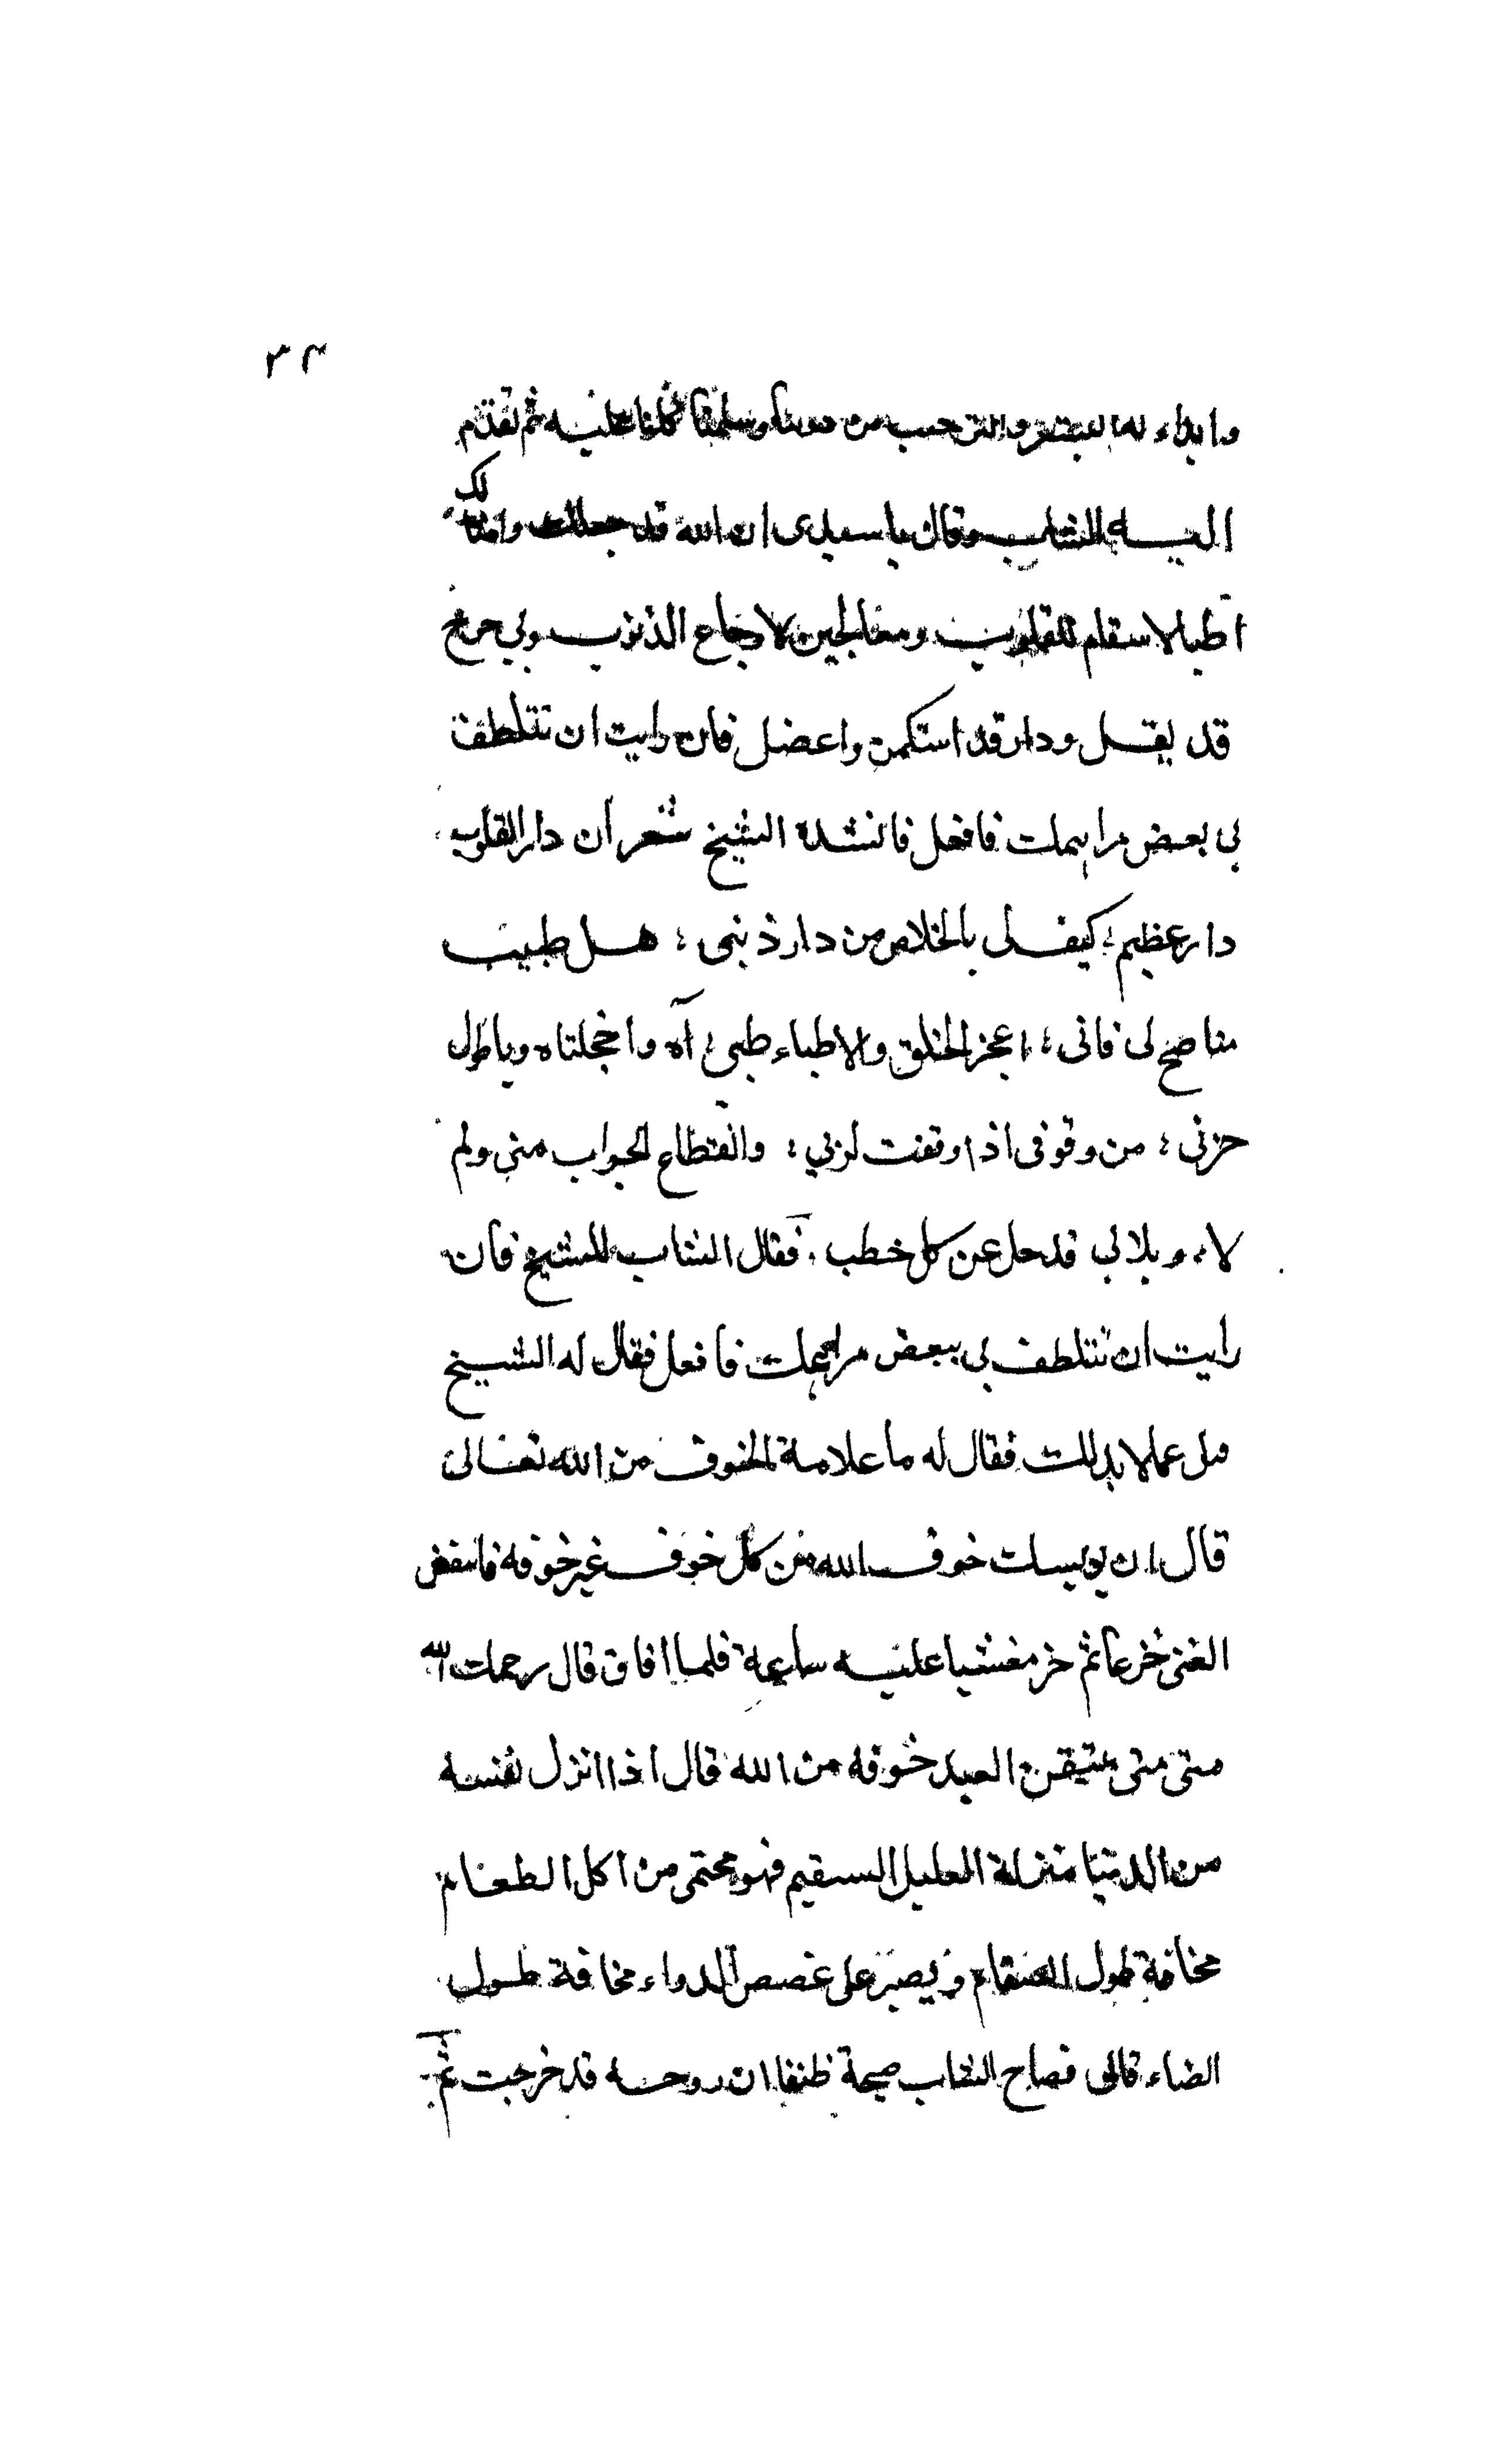 ٣٣
وابداء له البشر والترحيب من دوننا وسلمنا كلنا عليه ثم تقدم
اليه الشاب وقال يا سيدى ان الله قد جعلك وامثالك
اطبا لاسقام القلوب ومعالجين لاوجاع الذنوب وبي جرح
قد نغل وداء قد استكمن واعضل فان رايت ان تتلطف
بي بعض مراهمك فافعل فانشده الشيخ شعر ان داء القلوب
داء عظيم ؛ كيف لى بالخلاص من داء ذنبى ؛ هل طبيب
مناصح لى فانى ؛ اعجز الخلق والاطباء طبى ؛ آه واخجلتاه وياطول
حزنى ؛ من وقوفى اذا وقفت لربي ؛ وانقطاع الجواب منى ولم
لا ؛ وبلائي قد حل عن كل خطب . فقال الشاب للشيخ فان
رأيت ان تتلطف بي ببعض مراهمك فافعل فقال له الشيخ
سل عما بدا لك فقال له ما علامة الخوف من الله تعالى
قال ان يويسك خوف الله من كل خوف غير خوفه فانتفض
الفتى جزعا ثم خر مغشيا عليه ساعة فلما افاق قال رحمك الله
متى متى يتيقن العبد خوفه من الله قال اذا انزل نفسه
من الدنيا منزلة العليل السقيم فهو محتمى من اكل الطعام
مخافة طول السقام ويصبر على غصص الدواء مخافة طول
الضناء قال فصاح الشاب صيحة ظننا ان روحه قد خرجت ثم